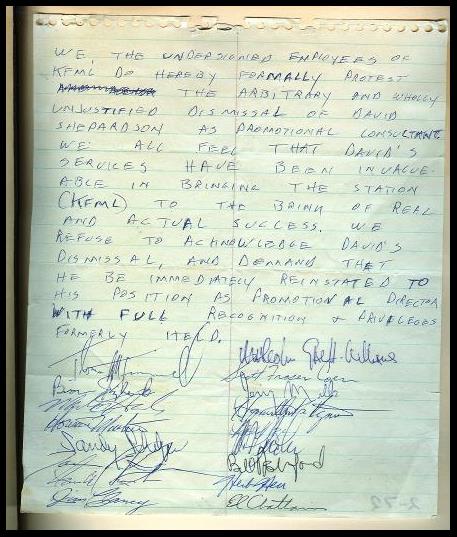 WE, THE UNDERSIGNED EMPLOYEES OF
KFML DO HEREBY FORMALLY PROTEST
THE ARBITRARY AND WHOLLY
UNJUSTIFIED DISMISSAL OF DAVID
SHEPARDSON AS PROMOTIONAL CONSULTANT.
WE ALL FEEL THAT DAVID'S
SERVICES HAVE BEEN INVALUE-
ABLE IN BRINGING THE STATION
(KFML) TO THE BRINK OF REAL
AND ACTUAL SUCCESS. WE
REFUSE TO ACKNOWLEDGE DAVID'S
DISMISSAL, AND DEMAND THAT
HE BE IMMEDIATELY REINSTATED TO
HIS POSITION AS PROMOTIONAL DIRECTOR
WITH FULL RECOGNITION + PRIVILEGES
FORMERLY HELD.
Thom
Malcolm
Scott Fraser
Jerry Mills
Sandy
Bill
Herb
Ed
2-72